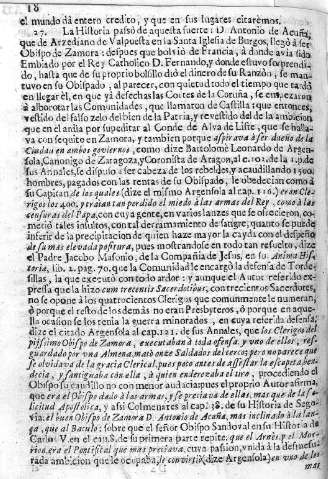 18
el mundo dà entero credito, y que en sus lugares citarèmos.
27. La Historia passò de aquesta suerte: D. Antonio de Acuña,
que de Arzediano de Valpuesta en la Santa Iglesia de Burgos, llegò à ser
Obispo de Zamora: despues que bolviò de Francia, à donde avia sido
Embiado por el Rey Catholico D. Fernando, y donde estuvo sorprendi-
do, hasta que de su proprio bolsillo diò el dinero de su Ranzòn, se man-
tuvo en su Obispado, al parecer, con quietud todo el tiempo que tardò
en llegar èl, en que yà deshechas las Cortes de la Coruña, se empezaron
à alborotar las Comunidades, que llamaron de Castilla: que entonces,
vestido del falso zelo del bien de la Patria, y revestido del de la ambicion
que en èl ardia por supeditar al Conde de Alva de Liste, que se halla-
va con sequito en Zamora, y tambien porque aspirava à ser dueño de la
Ciudad en ambos goviernos, como dize Bartolomè Leonardo de Argen-
sola, Canonigo de Zaragoza, y Coronista de Aragon, al c. 102. de la 1. p. de
sus Annales, se dispuso à ser cabeza de los rebeldes, y acaudillando
hombres, pagados con las rentas de su Obispado, le obedecian como à
su Capitan: de los quales (dize el mismo Argensola al cap. 116.) eran Cle-
rigos los 400. y traían tan perdido el miedo à las armas del Rey, como à las
censuras del Papa, con cuya gente, en varios lanzes que se ofrecieron, co-
metiò tales insultos, con tal derramamiento de sangre, quanto se puede
inferir de la precipitacion de quien haze mayor la cayda con el despeño
de su mas elevada postura, pues mostrandose en todo tan resuelto, dize
el Padre Jacobo Masonio, de la Compañia de Jesus, en su Anima His-
toria, lib. 1. pag. 70. que la Comunidad le encargò la defensa de Torde-
sillas, la que executò con todo ardor: y aunque el Autor referido ex-
pressa que la hizo cum trecentis Sacerdotibus, con trecientos Sacerdotes,
no se opone à los quatrocientos Clerigos que comunmente le numeran,
ò porque el resto de los demàs no eran Presbyteros, ò porque en aque-
lla ocasion se los tenia la guerra minorados, en cuya referida defensa,
dize el citado Argensola al cap. 121. de sus Annales, que los Clerigos del
piissimo Obispo de Zamora, executaban à toda ofensa, y uno de ellos, res-
guardado por una Almena, matò onze Saldados del cerco; pero no parece que
se olvidava de la gracia Clerical, pues poco antes de assestar la escopeta, ben-
decia, y santiguaba con ella, à quien enderezaba el tiro, procediendo el
Obispo su caudillo no con menor audacia; pues el proprio Autor afirma,
que era el Obispo dado à las armas, y se preciava de ellas, mas que de la so-
licitud Apostolica, y assi Colmenares al cap. 38. de su Historia de Sego-
via. el buen Obispo de Zamora D. Antonio de Acuña, mas inclinado à la lan-
ça, que al Baculo: sobre que el señor Obispo Sandoval en su Historia de
Carlos V. en el cap. 8. de su primera parte repite, que el Arnès, y el Mor-
rion, era el Pontifical que mas preciava, cuya passion, unida à la desmesu-
rada ambicion que le ocupaba, le convirtiò (dize Argensola) en uno de los
mas